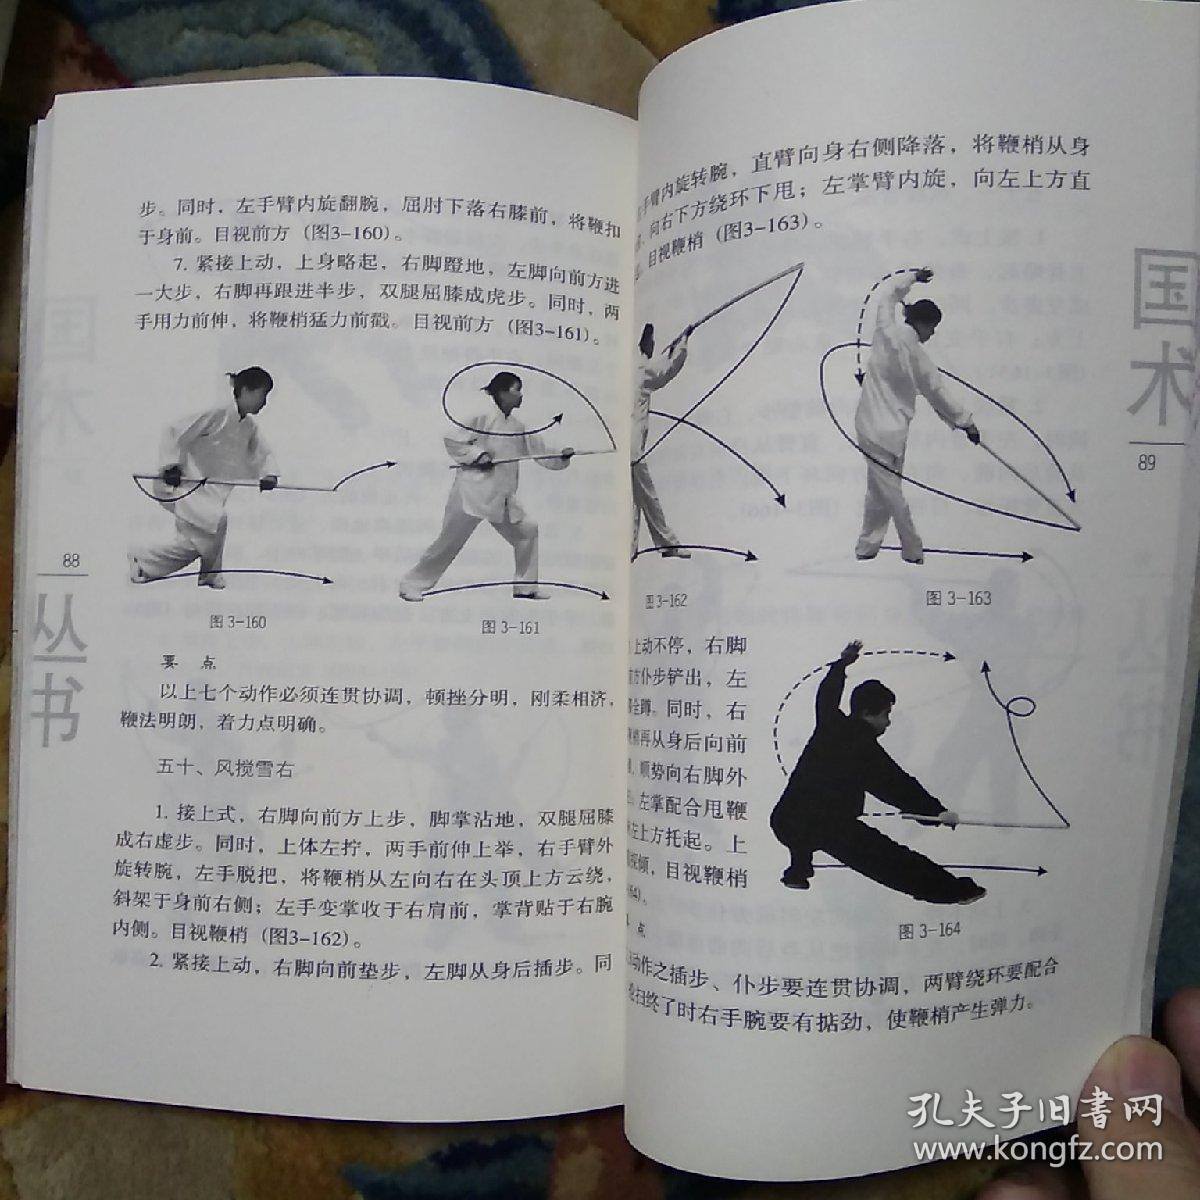 步。同时，左手臂内旋翻腕，屈肘下落右膝前，将鞭扣
于身前。目视前方（图3-160）。
7. 紧接上动，上身略起，右脚蹬地，左脚向前方进
一大步，右脚再跟进半步，双腿屈膝成虎步。同时，两
手用力前伸，将鞭梢猛力前戳。目视前方（图3-161）。
图 3-160
图 3-161
要 点
以上七个动作必须连贯协调，顿挫分明，刚柔相济，
鞭法明朗，着力点明确。
五十、风搅雪右
1. 接上式，右脚向前方上步，脚掌沾地，双腿屈膝
成右虚步。同时，上体左拧，两手前伸上举，右手臂外
旋转腕，左手脱把，将鞭梢从左向右在头顶上方云绕，
斜架于身前右侧；左手变掌收于右肩前，掌背贴于右腕
内侧。目视鞭梢（图3-162）。
2. 紧接上动，右脚向前垫步，左脚从身后插步。同
88
丛书
手臂内旋转腕，直臂向身右侧降落，将鞭梢从身
向右下方绕环下甩；左掌臂内旋，向左上方直
目视鞭梢（图3-163）。
图 3-162
图 3-163
上动不停，右脚
前方仆步铲出，左
全蹲。同时，右
梢再从身后向前
顺势向右脚外
左掌配合甩鞭
左上方托起。上
视倾，目视鞭梢
64）。
图 3-164
点
动作之插步、仆步要连贯协调，两臂绕环要配合
扫终了时右手腕要有掂劲，使鞭梢产生弹力。
国术
89
孔夫子旧书网
www.kongfz.com